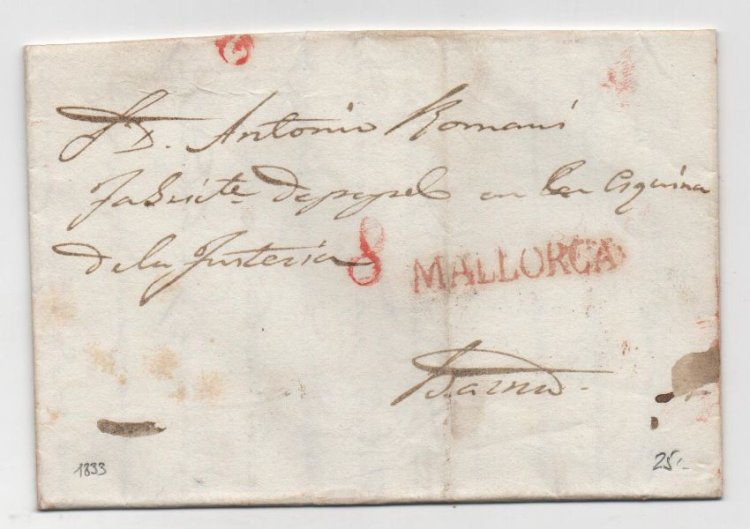 Sr. D. Antonio Romaní
Fabricte. de papel en la esquina
de la Fusteria 8 MALLORCA
Barna.
1833 25.-